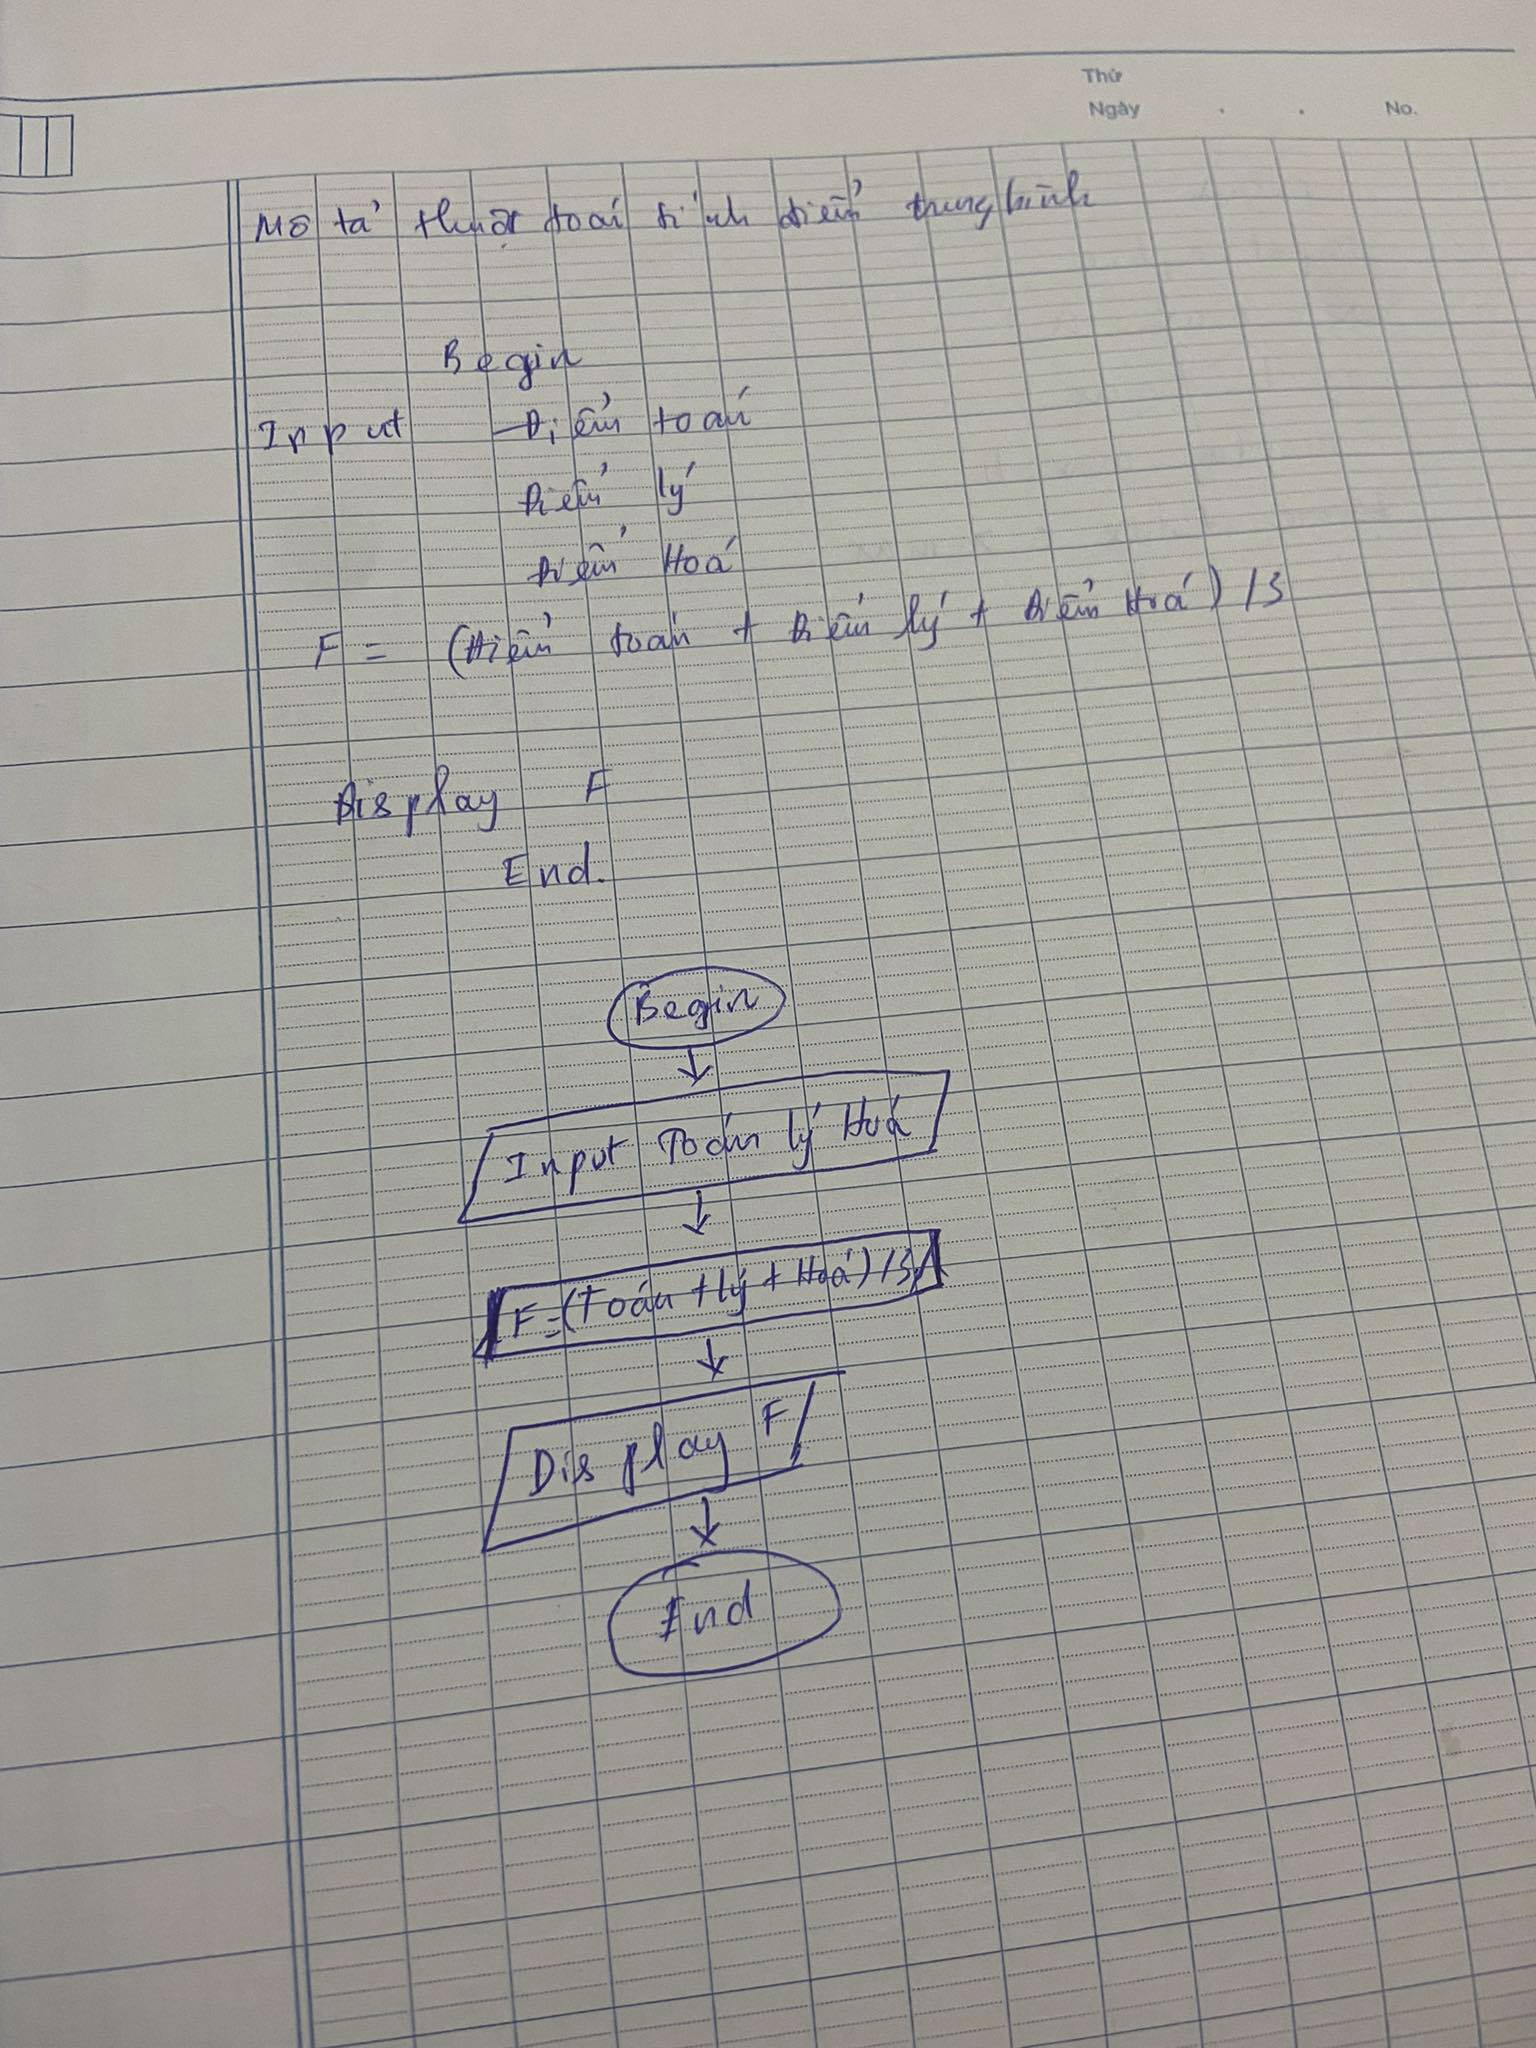 Thứ
Ngày . . No.
Mô tả thuật toán tính điểm trung bình
Begin
Input Điểm toán
Điểm lý
Điểm Hoá
F = (Điểm toán + Điểm lý + Điểm Hoá) / 3
Display F
End.
Begin
Input Toán lý Hoá
F = (Toán + lý + Hoá) / 3
Display F
End